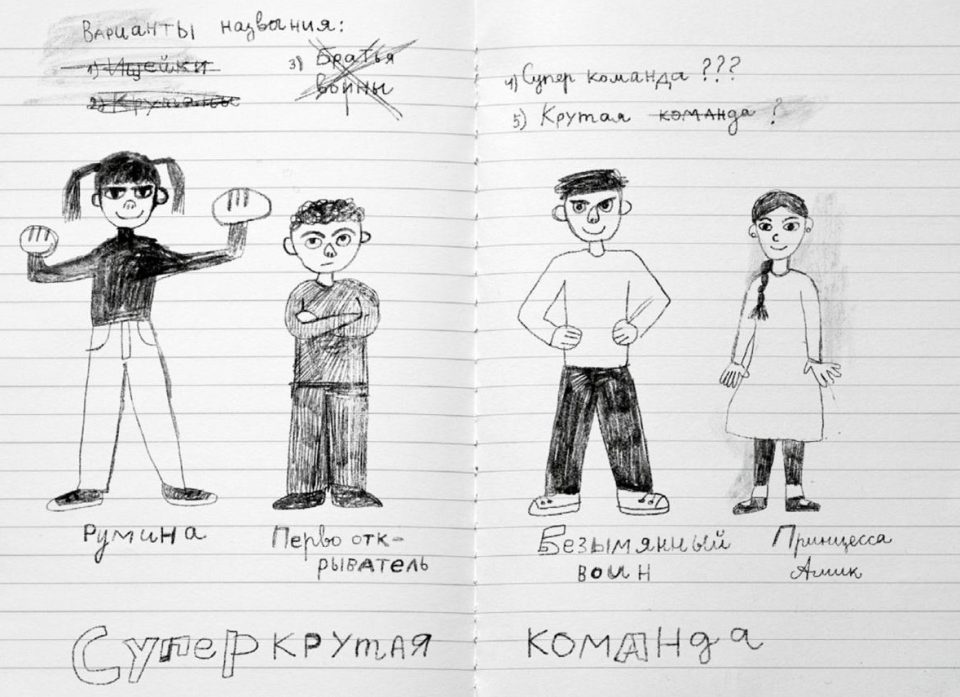 Варианты назвыния:
1) Ищейки
2)
3) Братья
войны
4) Супер команда ???
5) Крутая команда ?
Румина
Первоотк-
рыватель
Безымянный
воин
Принцесса
Амик
Супер крутая команда